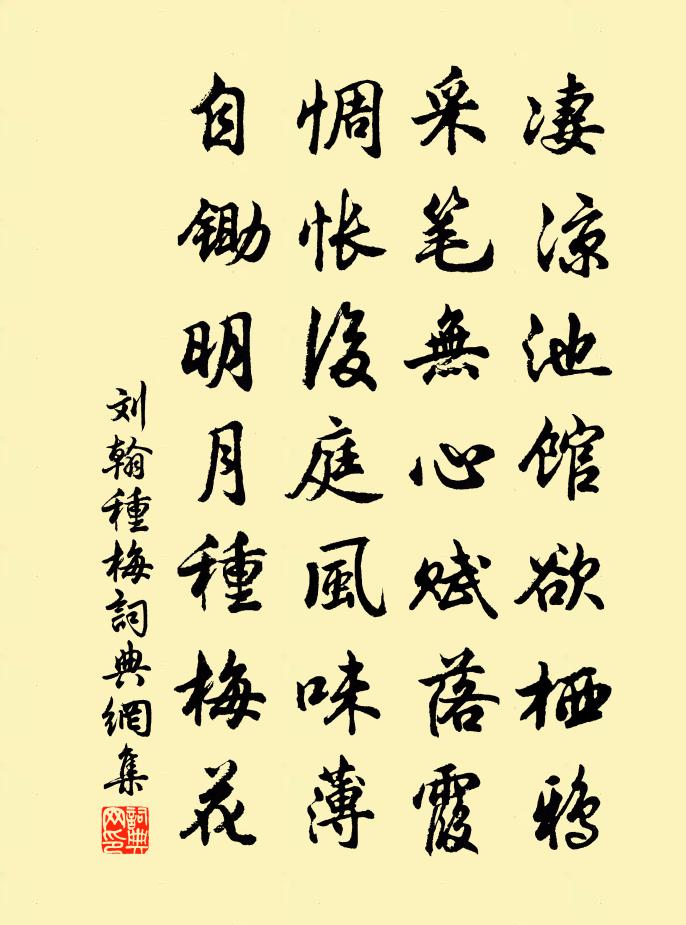 凄凉池馆欲栖鸦
采笔無心赋落霞
惆怅後庭風味薄
自鋤明月種梅花
刘翰種梅詞典網集
詞典网印